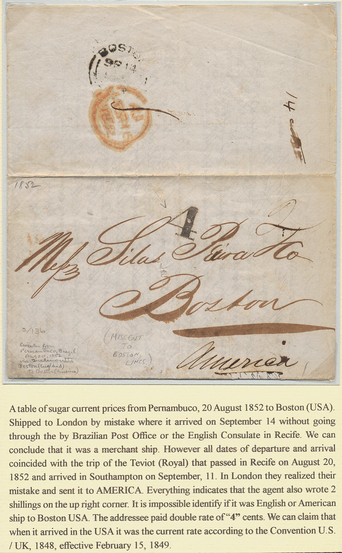 BOSTON
SP 14
14
1852
4
2/
Messrs Silas Peirce & Co
Boston
America
(MISSENT
TO
BOSTON
A table of sugar current prices from Pernambuco, 20 August 1852 to Boston (USA).
Shipped to London by mistake where it arrived on September 14 without going
through the by Brazilian Post Office or the English Consulate in Recife. We can
conclude that it was a merchant ship. However all dates of departure and arrival
coincided with the trip of the Teviot (Royal) that passed in Recife on August 20,
1852 and arrived in Southampton on September, 11. In London they realized their
mistake and sent it to AMERICA. Everything indicates that the agent also wrote 2
shillings on the up right corner. It is impossible identify if it was English or American
ship to Boston USA. The addressee paid double rate of “4” cents. We can claim that
when it arrived in the USA it was the current rate according to the Convention U.S.
/ UK, 1848, effective February 15, 1849.